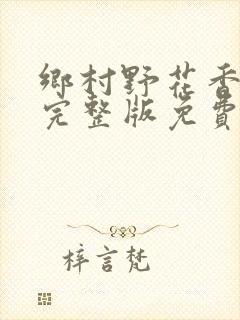 鄉村野花香
完整版免費
梓言梵